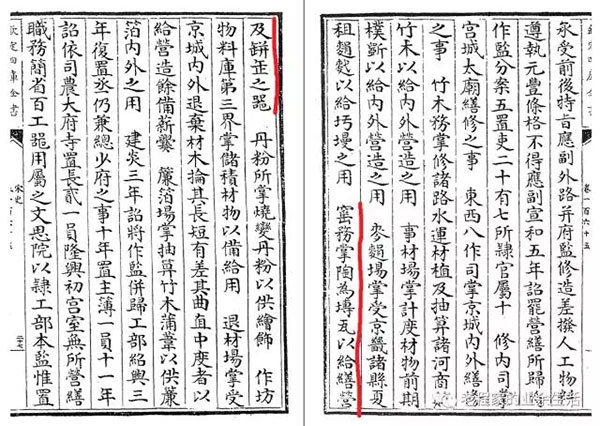 永受前後特旨應副外路并府監修造差撥人工物料
遵執元豐條格不得應副宣和五年詔罷營繕所歸將
作監分案五置吏二十有七所隸官屬十 修内司掌
宫城太廟繕修之事 東西八作司掌京城内外繕修
之事 竹木務掌修諸路水運材植及抽算諸河商
竹木以給内外營造之用 事材場掌計度材物前期
樸斵以給内外營造之用 麥䴬場掌受京畿諸縣夏
租以給圬墁之用 窰務掌陶為塼瓦以給繕營
卷一百六十五
及缾缶之器 丹粉所掌燒變丹粉以供繪飾 作坊
物料庫第三界掌儲積材物以備給用 退材場掌受
京城内外退棄材木掄其長短有差其曲直中度者以
給營造餘備薪爨 簾箔場掌抽算竹木蒲葦以供簾
箔内外之用 建炎三年詔將作監併歸工部紹興三
年復置丞仍兼總少府之事十年置主簿一員十一年
詔依司農太府寺置長貳一員隆興初宫室無所營繕
職務簡省百工器用屬之文思院以隸工部本監惟置
欽定四庫全書
宋史